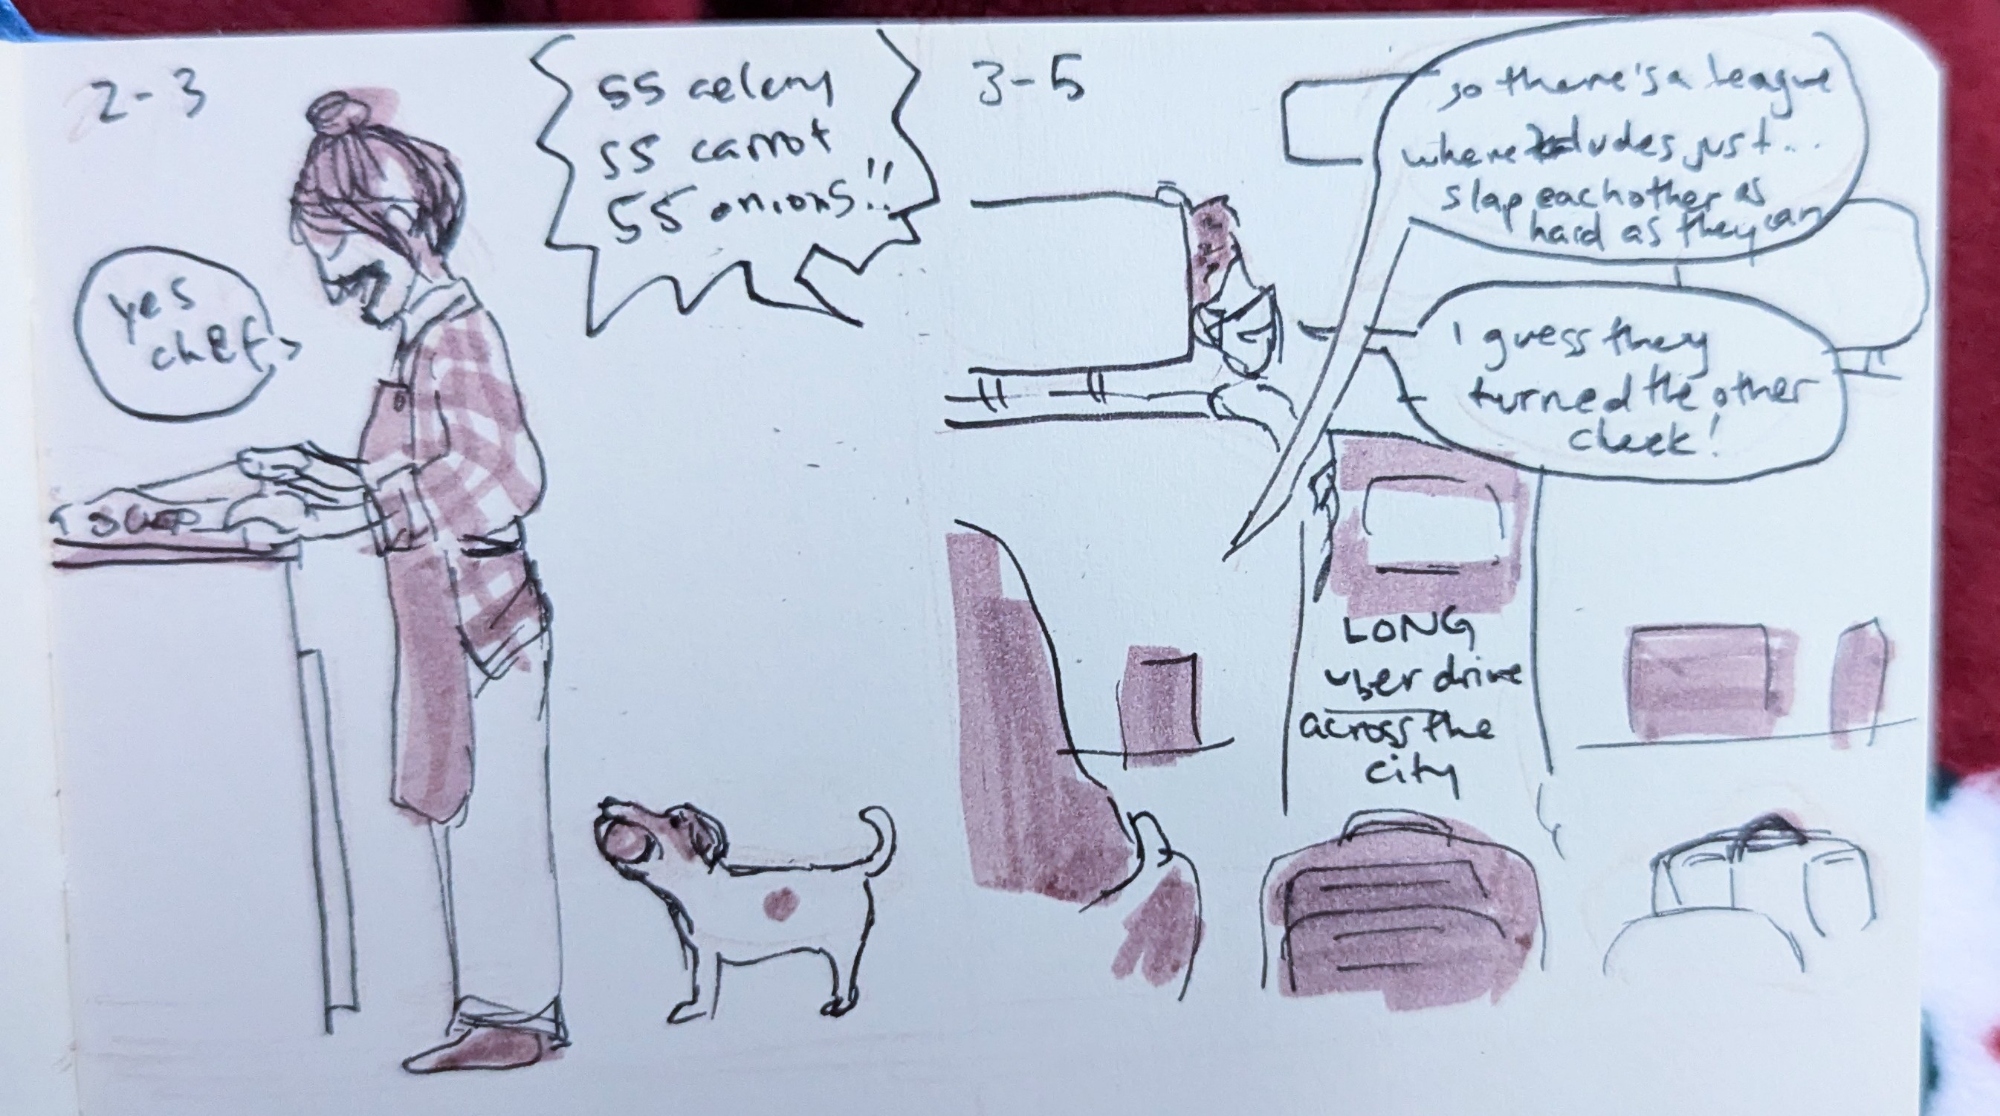 2-3
55 celery
55 carrot
55 onions!!
yes
chef,
CHOP
3-5
so there's a league
where dudes just...
slap eachother as
hard as they can
I guess they
turned the other
cheek!
LONG
uber drive
across the
city